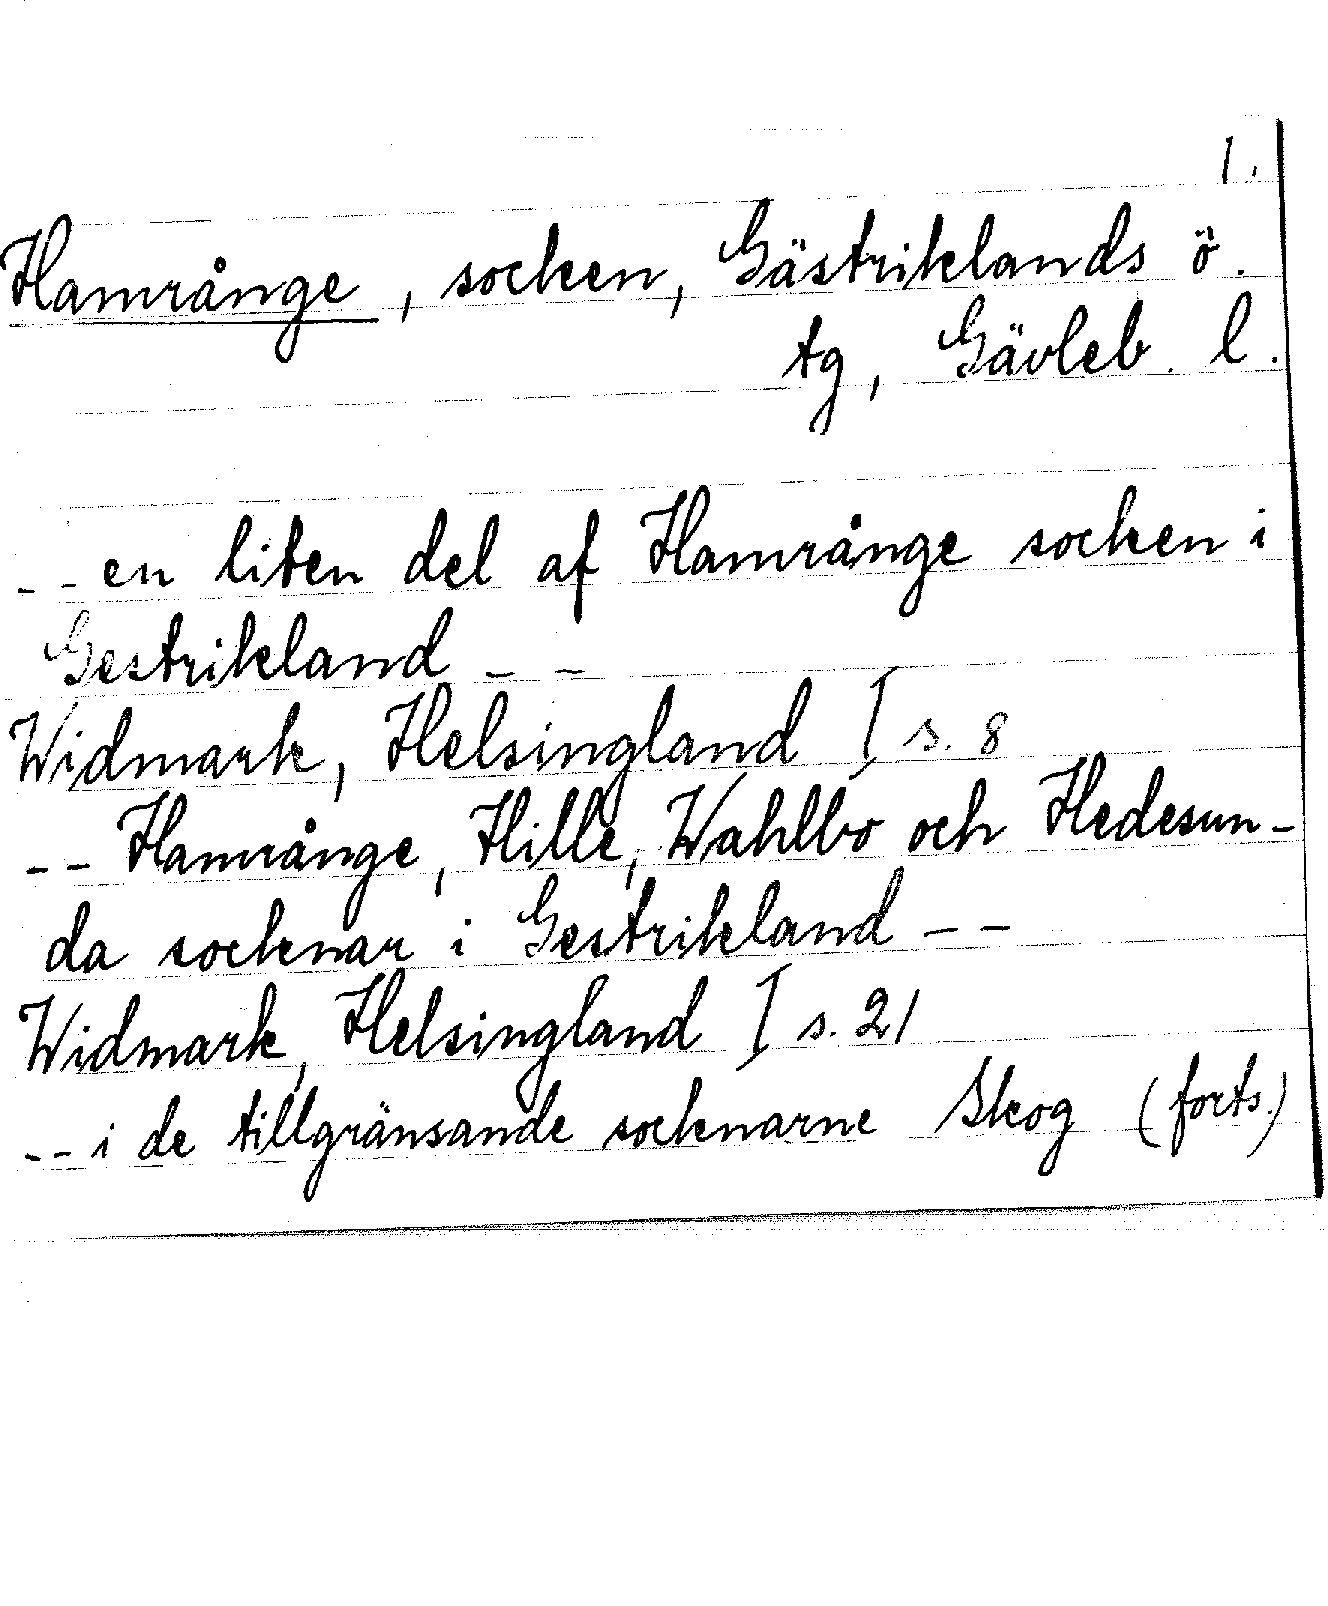 1.
Hamrånge, socken, Gästriklands ö.
tg, Gävleb. l.
-- en liten del af Hamrånge socken i
Gestrikland --
Widmark, Helsingland I s. 8
-- Hamrånge, Hille, Wahlbo och Hedesun-
da socknar i Gestrikland --
Widmark, Helsingland I s. 21
-- i de tillgränsande socknarne Skog (forts.)